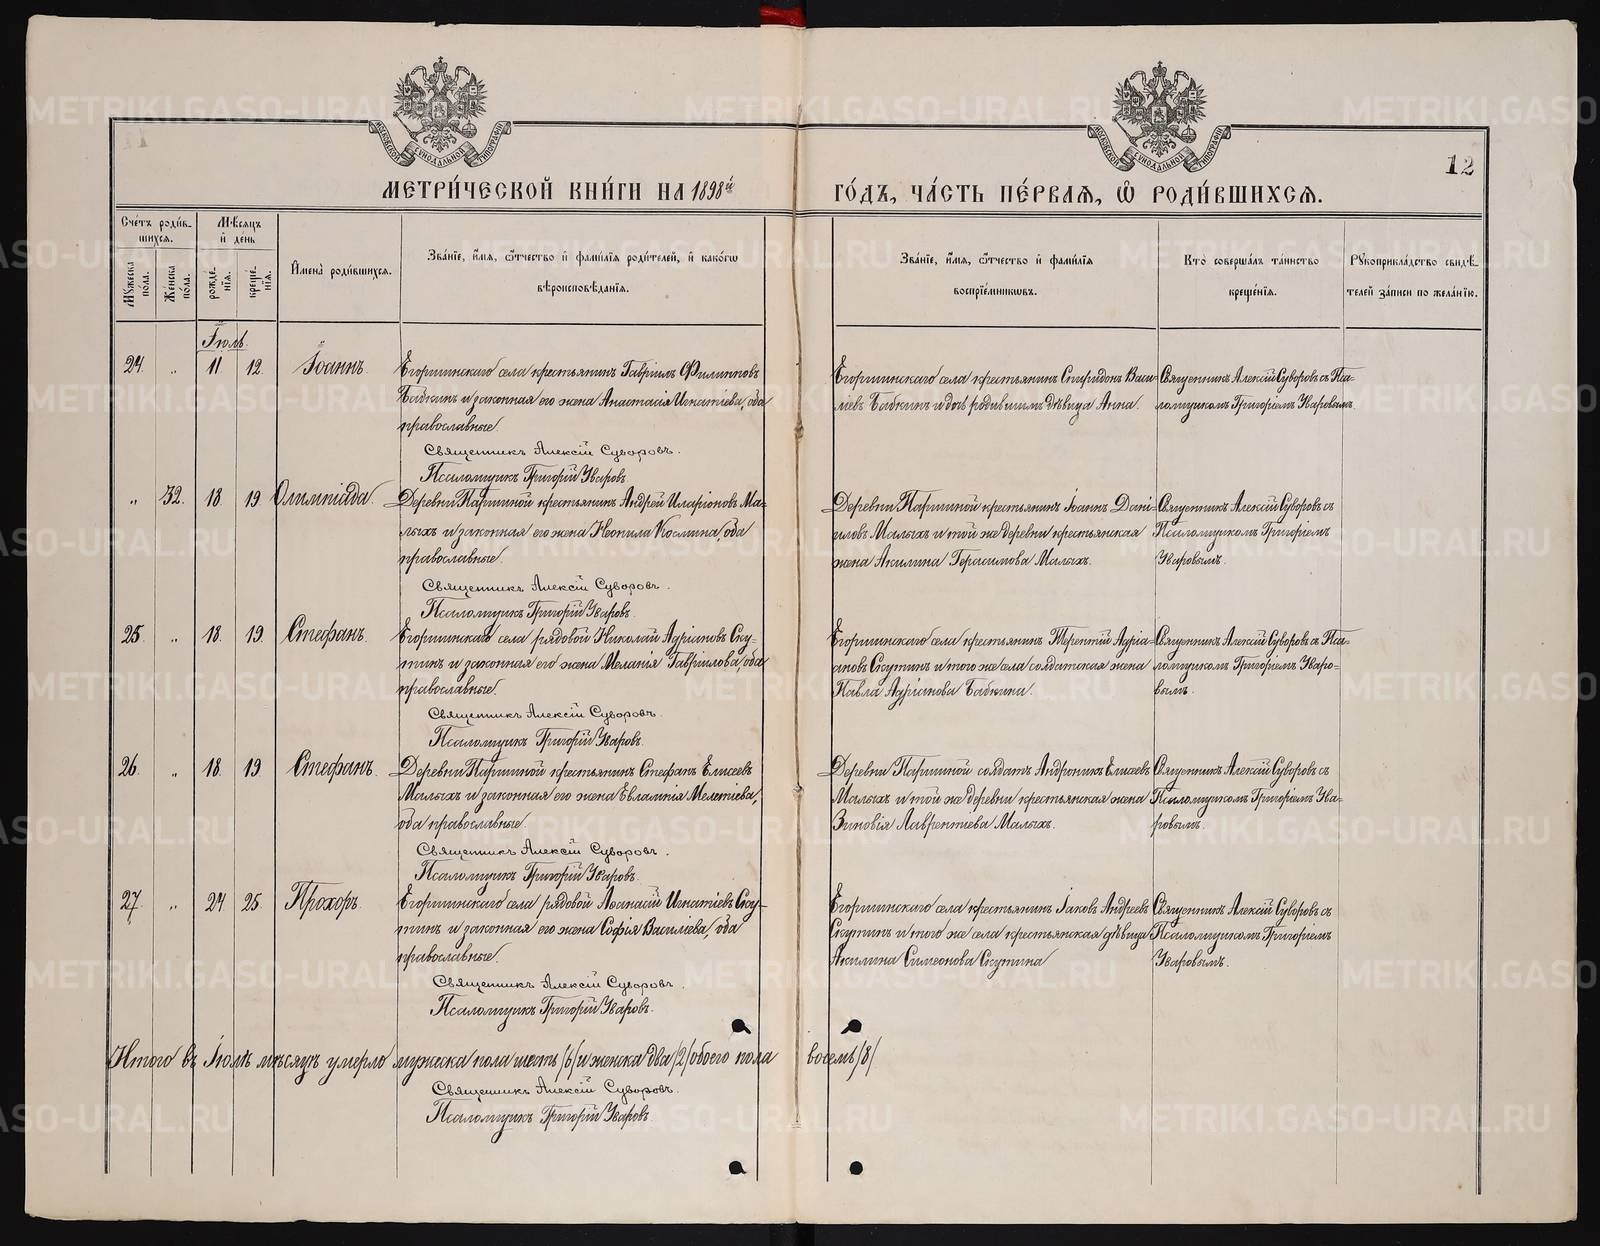 МЕТРИ́ЧЕСКОЙ КНИ́ГИ НА 1898й ГО́ДЪ, ЧА́СТЬ ПЕ́РВАЯ, Ѿ РОДИ́ВШИХСЯ.
12
Сче́тъ роди́в-
шихся.
Му́жеска по́ла.
Же́нска по́ла.
Мѣ́сяцъ и де́нь
рожде́-нія.
креще́-нія.
И҆мена̀ роди́вшихся.
Зва́ніе, и҆́мя, ѻ҆́тчество и҆ фами́лія роди́телей, и҆ како́гѡ
вѣроисповѣ́данія.
Зва́ніе, и҆́мя, ѻ҆́тчество и҆ фами́лія
воспріе́мниковъ.
Кто̀ соверша́лъ та́инство
креще́нія.
Рꙋкоприкла́дство свидѣ́-
телей за́писи по жела́нію.
Іюль.
24. „ 11 12. Іоаннъ.
Егоршинскаго села крестьянинъ Гавріилъ Филипповъ
Бабкинъ и законная его жена Анастасія Игнатіева, оба
православные.
Священникъ Алексій Суворовъ.
Псаломщикъ Григорій Уваровъ.
Егоршинскаго села крестьянинъ Спиридонъ Васи-
ліевъ Бабкинъ и дочь родившимъ дѣвица Анна.
Священникъ Алексій Суворовъ съ Пса-
ломщикомъ Григоріемъ Уваровымъ.
„ 32. 18. 19 Олимпіада.
Деревни Паршиной крестьянинъ Андрей Иларіоновъ Ма-
лыхъ и законная его жена Неонила Космина, оба
православные.
Священникъ Алексій Суворовъ.
Псаломщикъ Григорій Уваровъ.
Деревни Паршиной крестьянинъ Іоаннъ Дані-
иловъ Малыхъ и той же деревни крестьянская
жена Акилина Герасимова Малыхъ.
Священникъ Алексій Суворовъ съ
Псаломщикомъ Григоріемъ
Уваровымъ.
25. „ 18. 19. Стефанъ.
Егоршинскаго села рядовой Николай Адріановъ Ску-
тинъ и законная его жена Меланія Гавріилова, оба
православные.
Священникъ Алексій Суворовъ.
Псаломщикъ Григорій Уваровъ.
Егоршинскаго села крестьянинъ Терентій Адріа-
новъ Скутинъ и того же села солдатская жена
Павла Адріанова Бабкина.
Священникъ Алексій Суворовъ съ Пса-
ломщикомъ Григоріемъ Уваро-
вымъ.
26. „ 18. 19 Стефанъ.
Деревни Паршиной крестьянинъ Стефанъ Елисеевъ
Малыхъ и законная его жена Евлампія Мелетіева,
оба православные.
Священникъ Алексій Суворовъ.
Псаломщикъ Григорій Уваровъ.
Деревни Паршиной солдатъ Андроникъ Елисеевъ
Малыхъ и той же деревни крестьянская жена
Зиновія Лаврентіева Малыхъ.
Священникъ Алексій Суворовъ съ
Псаломщикомъ Григоріемъ Ува-
ровымъ.
27. „ 24 25. Прохоръ.
Егоршинскаго села рядовой Аѳанасій Игнатіевъ Ску-
тинъ и законная его жена Софія Василіева, оба
православные.
Священникъ Алексій Суворовъ.
Псаломщикъ Григорій Уваровъ.
Егоршинскаго села крестьянинъ Іаковъ Андреевъ
Скутинъ и того же села крестьянская дѣвица
Акилина Симеонова Скутина
Священникъ Алексій Суворовъ съ
Псаломщикомъ Григоріемъ
Уваровымъ.
Итого въ Іюлѣ мѣсяцѣ умерло мужеска пола шесть /6/ и женска два /2/ обоего пола восемь /8/
Священникъ Алексій Суворовъ.
Псаломщикъ Григорій Уваровъ.
METRIKI.GASO-URAL.RU